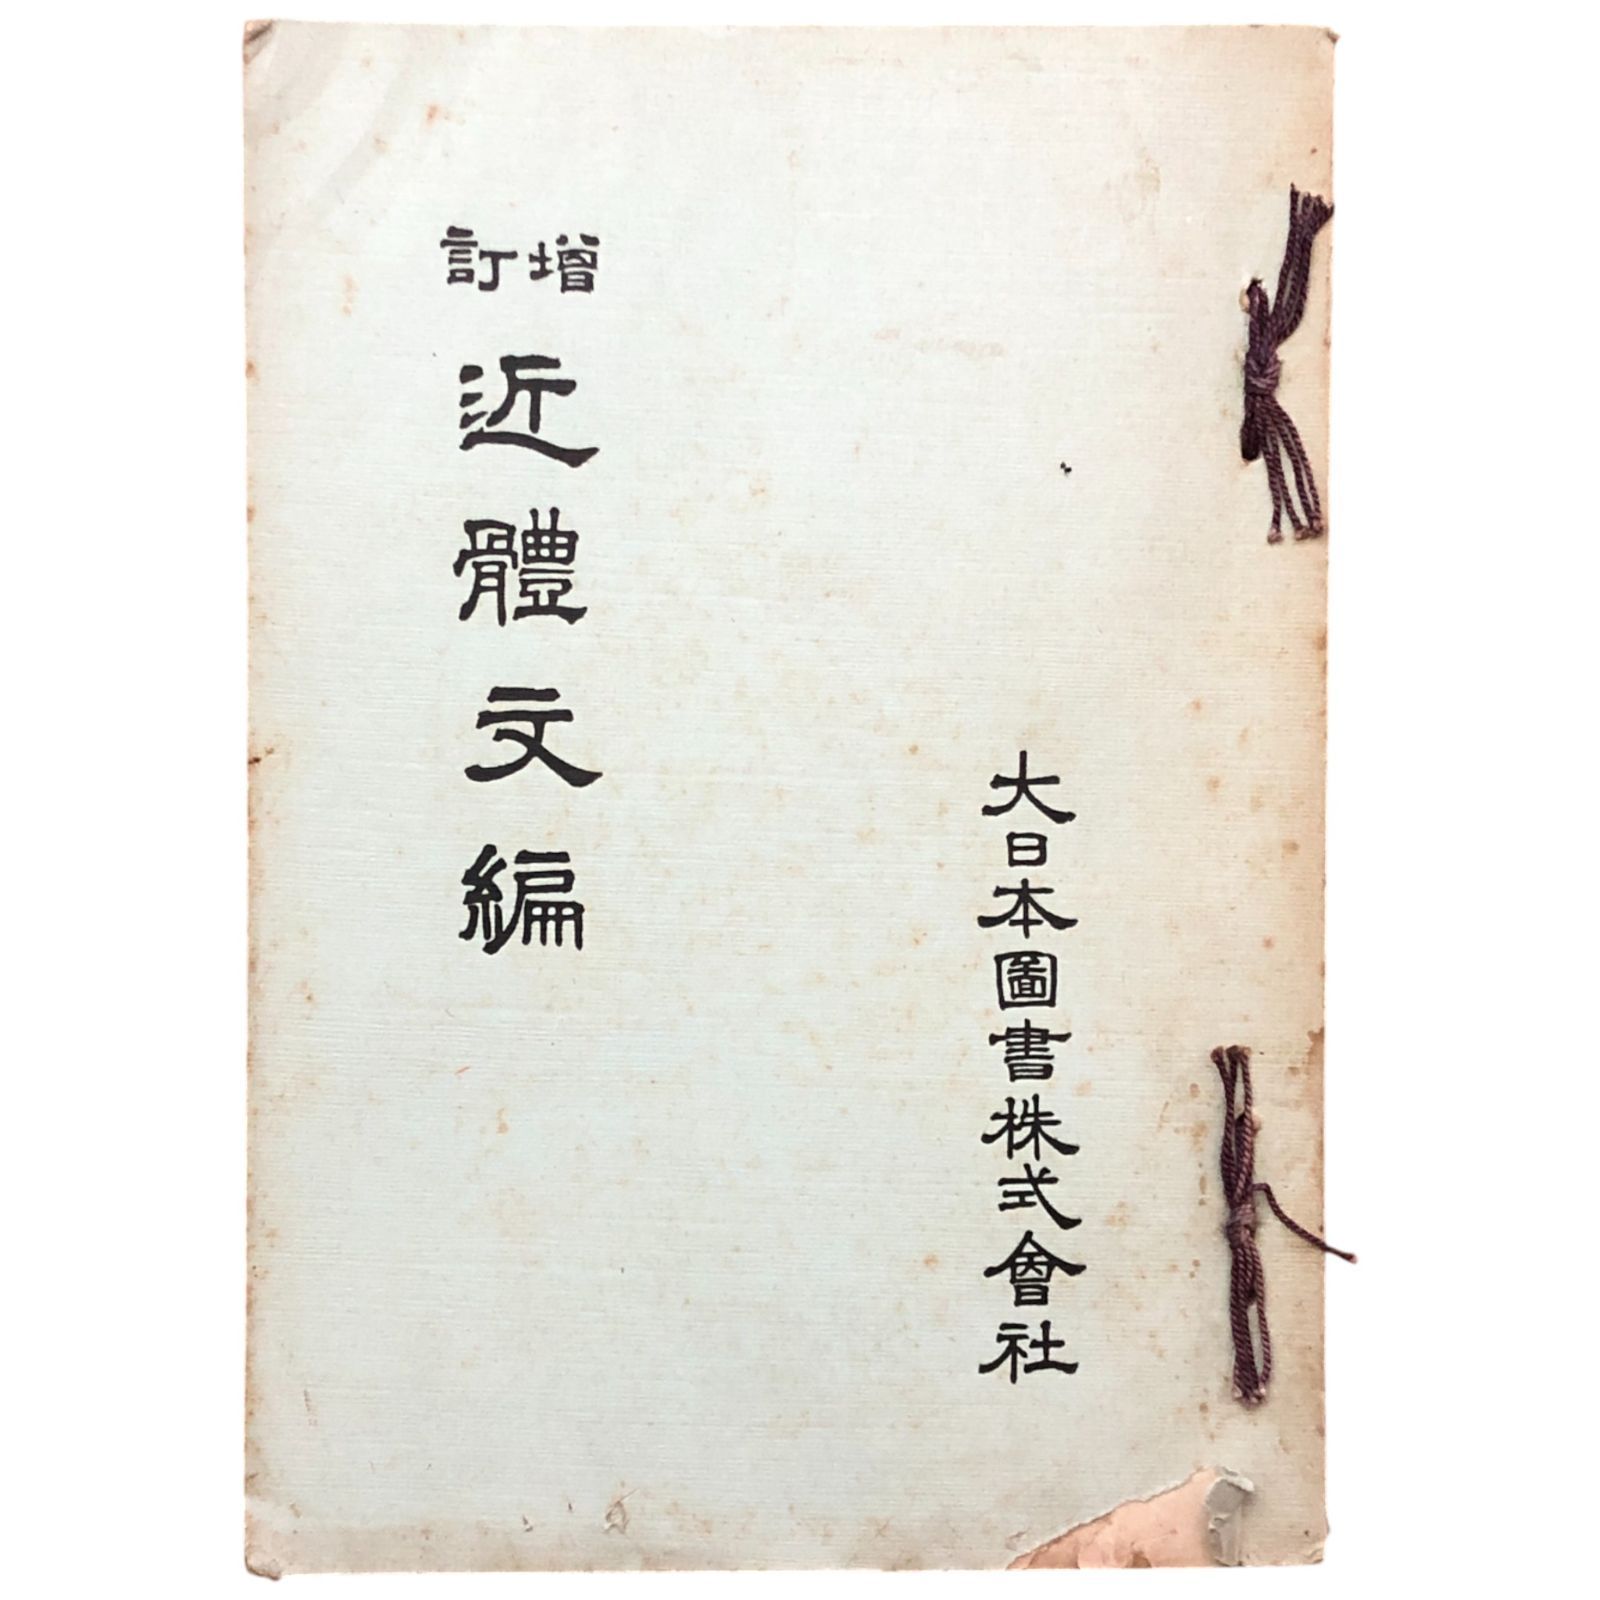 増訂
近體文編
大日本圖書株式會社